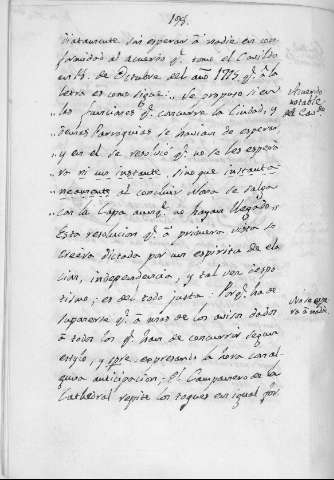 198.
diatamente sin esperar â nadie en con
formidad al acuerdo q.e tomó el Cavildo
en 18. de Octubre del año 1775 q.e â la
letra es como sigue: „ Se propuso si en
„ las funciones q.e concurre la Ciudad, y
„ demas Parroquias se havian de esperar
„ y en el se resolvió q.e no se les espera
„ ra ni un instante, sino que instanta
„ neamente al concluir Nona se salga
„ con la Capa aunq.e no hayan llegado „
Esta resolucion q.e â primera vista se
creera dictada por un espiritu de ela
cion, independencia, y tal vez despo
tismo; es del todo justa: Porq.e ha de
suponerse q.e â unos de los avisos dados
â todos los q.e han de concurrir segun
estylo, y spre. expresando la hora con al
guna anticipacion: El Campanero en la
Cathedral repite los toques en igual for
Acuerdo
notable
del Cav.do
No se espe
ra â nadie